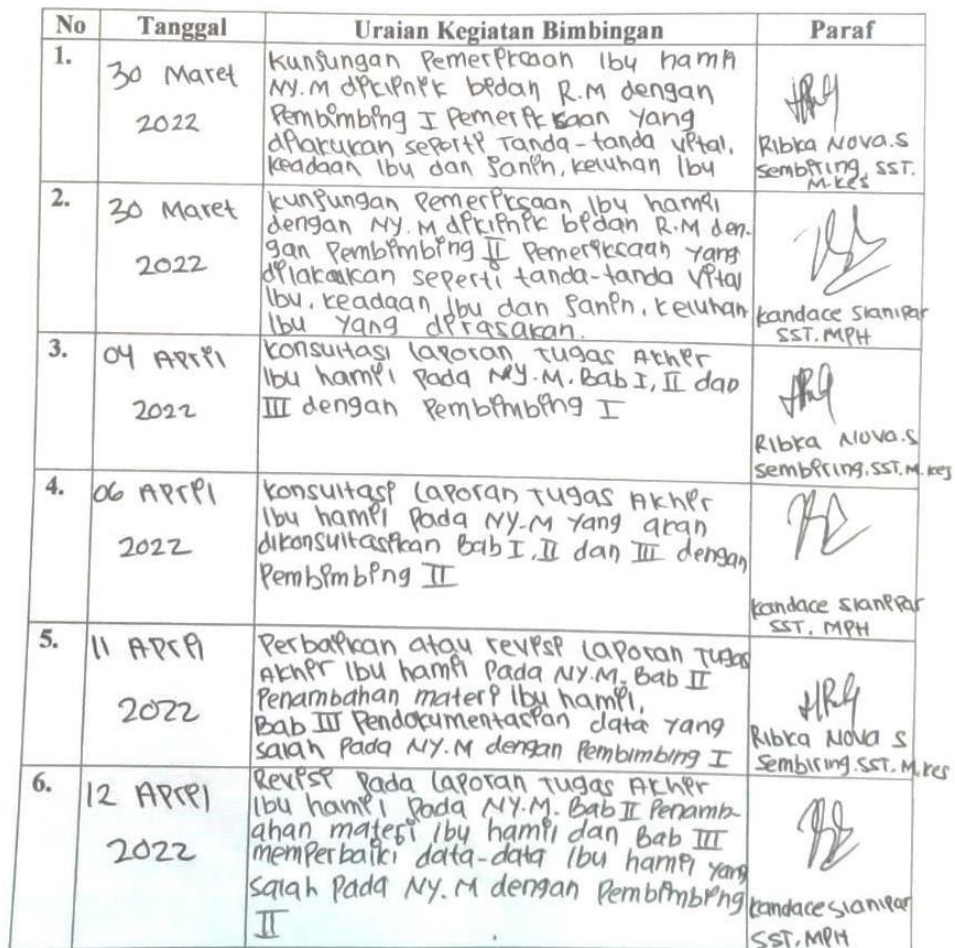 No Tanggal Uraian Kegiatan Bimbingan Paraf
1.
30 Maret
2022
Kunjungan Pemeriksaan Ibu hamil
NY.M diklinik bidan R.M dengan
Pembimbing I Pemeriksaan Yang
dilakukan seperti Tanda-tanda vital,
keadaan Ibu dan Janin, keluhan Ibu
Ribka Nova.S
Sembiring, SST.
M.Kes
2.
30 Maret
2022
kunjungan Pemeriksaan Ibu hamil
dengan NY.M diklinik bidan R.M den-
gan Pembimbing II Pemeriksaan Yang
dilakukan seperti tanda-tanda Vital
Ibu, keadaan Ibu dan Janin, keluhan
Ibu Yang dirasakan.
kandace Sianipar
SST.MPH
3.
04 April
2022
konsultasi laporan Tugas Akhir
Ibu hamil Pada NY.M. Bab I, II dan
III dengan Pembimbing I
Ribka Nova.S
Sembiring.SST.M.Kes
4.
06 April
2022
konsultasi laporan Tugas Akhir
Ibu hamil Pada NY.M Yang akan
dikonsultasikan Bab I, II dan III dengan
Pembimbing II
kandace Sianipar
SST, MPH
5.
11 April
2022
Perbaikan atau revisi laporan Tugas
Akhir Ibu hamil Pada NY.M. Bab II
Penambahan materi Ibu hamil,
Bab III Pendokumentasian data Yang
salah Pada NY.M dengan Pembimbing I
Ribka Nova S
Sembiring.SST.M.Kes
6.
12 April
2022
Revisi Pada laporan Tugas Akhir
Ibu hamil Pada NY.M. Bab II Penamb-
ahan materi Ibu hamil dan Bab III
memperbaiki data-data Ibu hamil Yang
salah Pada NY.M dengan Pembimbing
II
kandace Sianipar
SST, MPH